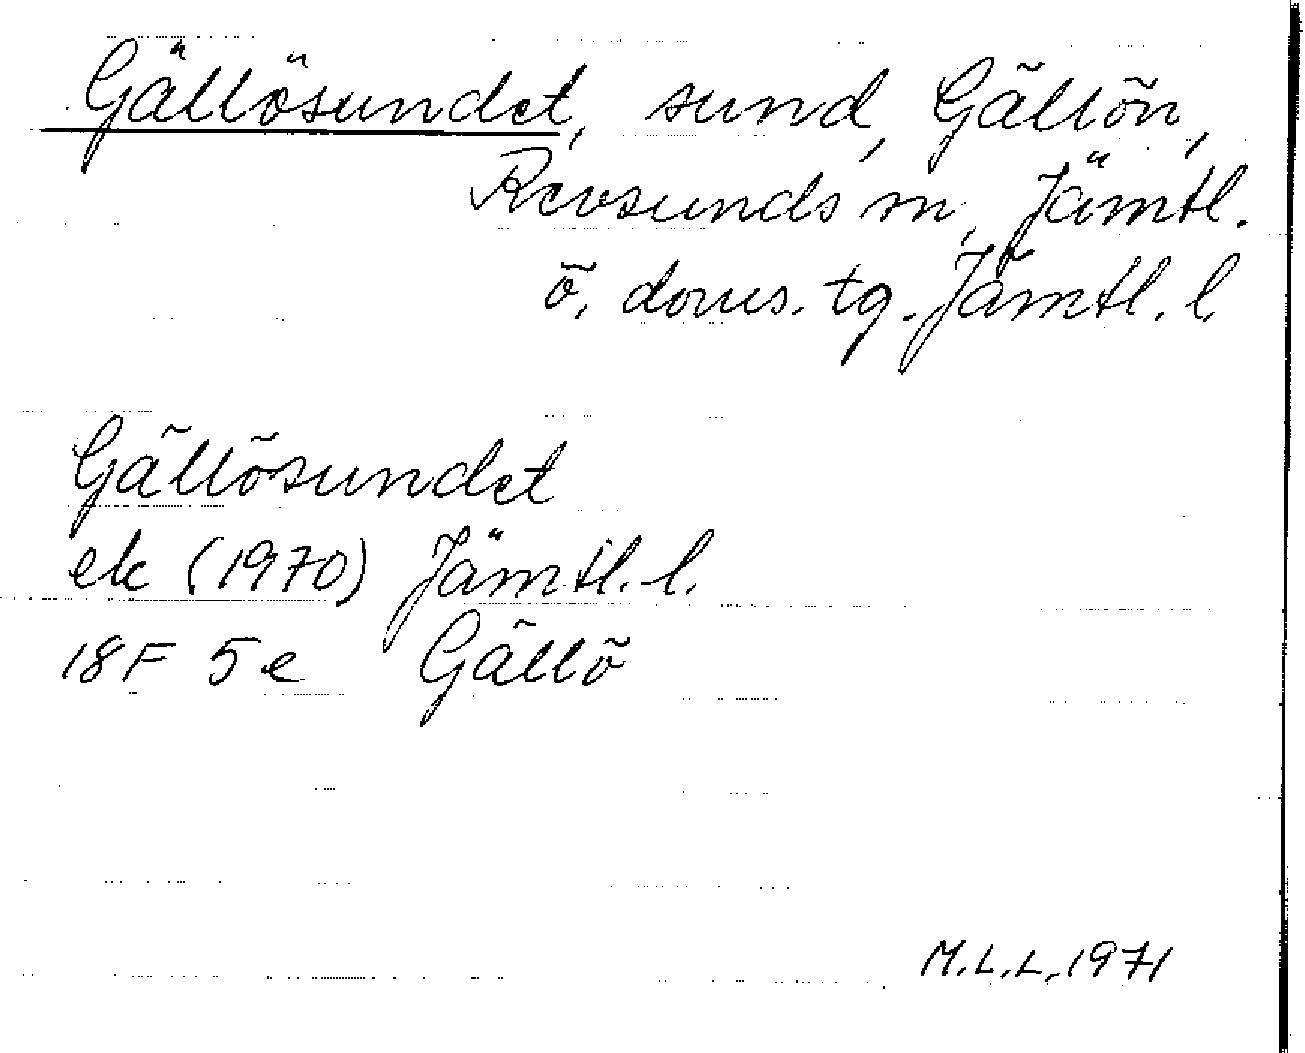 Gällösundet, sund, Gällön,
Revsunds sn, Jämtl.
ö. doms. tg. Jämtl. l.
Gällösundet
ek (1970) Jämtl. l.
18F 5e Gällö
M.L.L. 1971